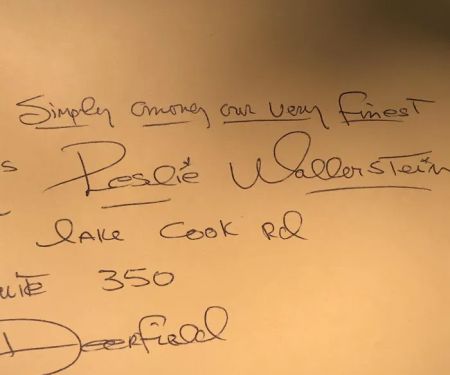 Simply among our very finest
Leslie Wallerstein
lake Cook Rd
350
Deerfield